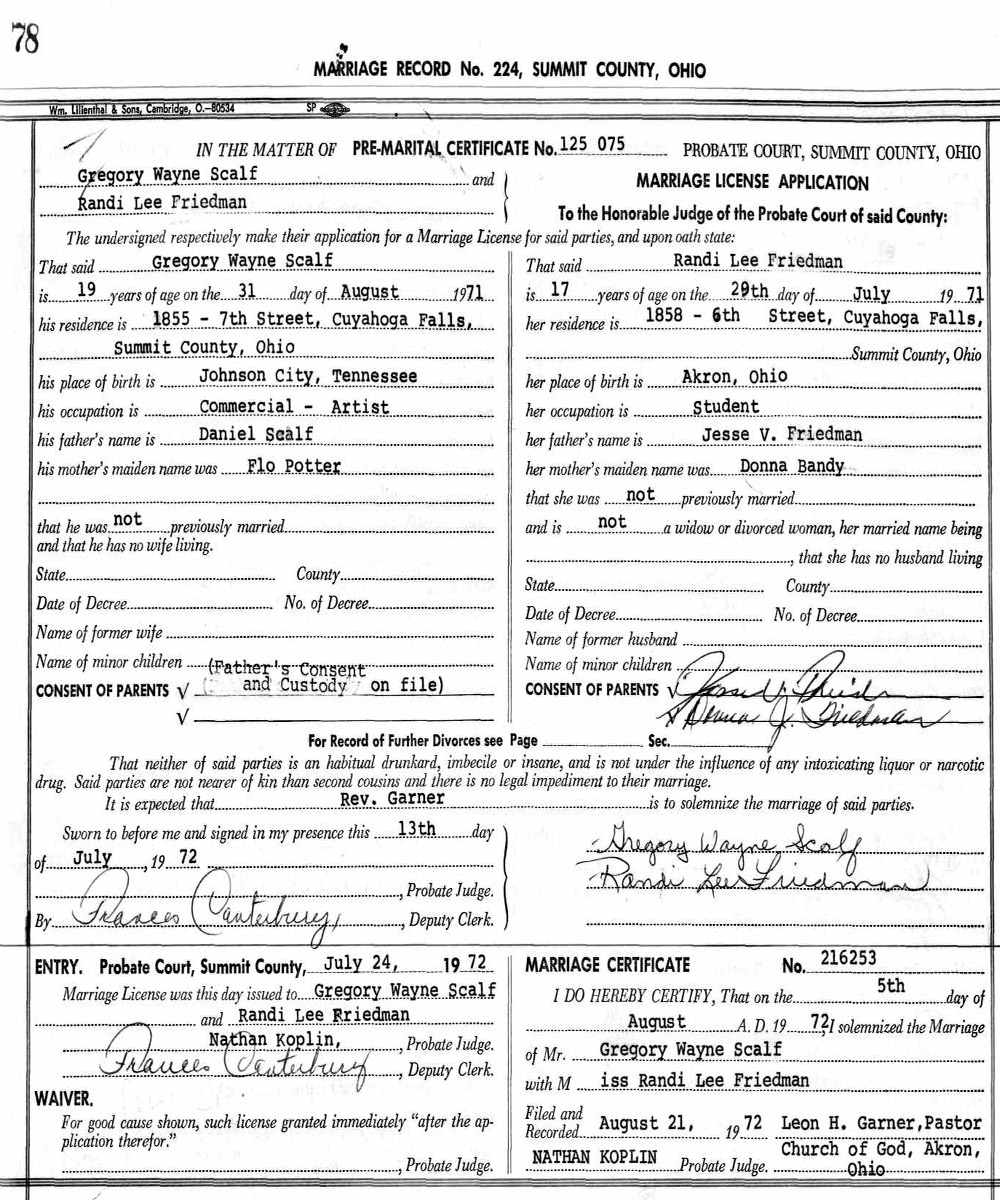 78
MARRIAGE RECORD No. 224, SUMMIT COUNTY, OHIO
Wm. Lilienthal & Sons, Cambridge, O.—80534 SP
IN THE MATTER OF PRE-MARITAL CERTIFICATE No. 125 075 PROBATE COURT, SUMMIT COUNTY, OHIO
Gregory Wayne Scalf and
Randi Lee Friedman
MARRIAGE LICENSE APPLICATION
To the Honorable Judge of the Probate Court of said County:
The undersigned respectively make their application for a Marriage License for said parties, and upon oath state:
That said Gregory Wayne Scalf
is 19 years of age on the 31 day of August 1971
his residence is 1855 - 7th Street, Cuyahoga Falls,
Summit County, Ohio
his place of birth is Johnson City, Tennessee
his occupation is Commercial - Artist
his father's name is Daniel Scalf
his mother's maiden name was Flo Potter
that he was not previously married
and that he has no wife living.
State County
Date of Decree No. of Decree
Name of former wife
Name of minor children (Father's Consent
CONSENT OF PARENTS √ and Custody on file)
√
That said Randi Lee Friedman
is 17 years of age on the 29th day of July 19 71
her residence is 1858 - 6th Street, Cuyahoga Falls,
Summit County, Ohio
her place of birth is Akron, Ohio
her occupation is Student
her father's name is Jesse V. Friedman
her mother's maiden name was Donna Bandy
that she was not previously married
and is not a widow or divorced woman, her married name being
, that she has no husband living
State County
Date of Decree No. of Decree
Name of former husband
Name of minor children
CONSENT OF PARENTS √
√ Donna J. Friedman
For Record of Further Divorces see Page Sec.
That neither of said parties is an habitual drunkard, imbecile or insane, and is not under the influence of any intoxicating liquor or narcotic
drug. Said parties are not nearer of kin than second cousins and there is no legal impediment to their marriage.
It is expected that Rev. Garner is to solemnize the marriage of said parties.
Sworn to before me and signed in my presence this 13th day
of July , 19 72
, Probate Judge.
By Frances Canterbury, , Deputy Clerk.
Gregory Wayne Scalf
Randi Lee Friedman
ENTRY. Probate Court, Summit County, July 24, 19 72
Marriage License was this day issued to Gregory Wayne Scalf
and Randi Lee Friedman
Nathan Koplin, , Probate Judge.
Frances Canterbury , Deputy Clerk.
WAIVER.
For good cause shown, such license granted immediately "after the ap-
plication therefor."
, Probate Judge.
MARRIAGE CERTIFICATE No. 216253
I DO HEREBY CERTIFY, That on the 5th day of
August A. D. 19 72, I solemnized the Marriage
of Mr. Gregory Wayne Scalf
with M iss Randi Lee Friedman
Filed and
Recorded August 21, 19 72 Leon H. Garner, Pastor
NATHAN KOPLIN Probate Judge. Church of God, Akron,
Ohio